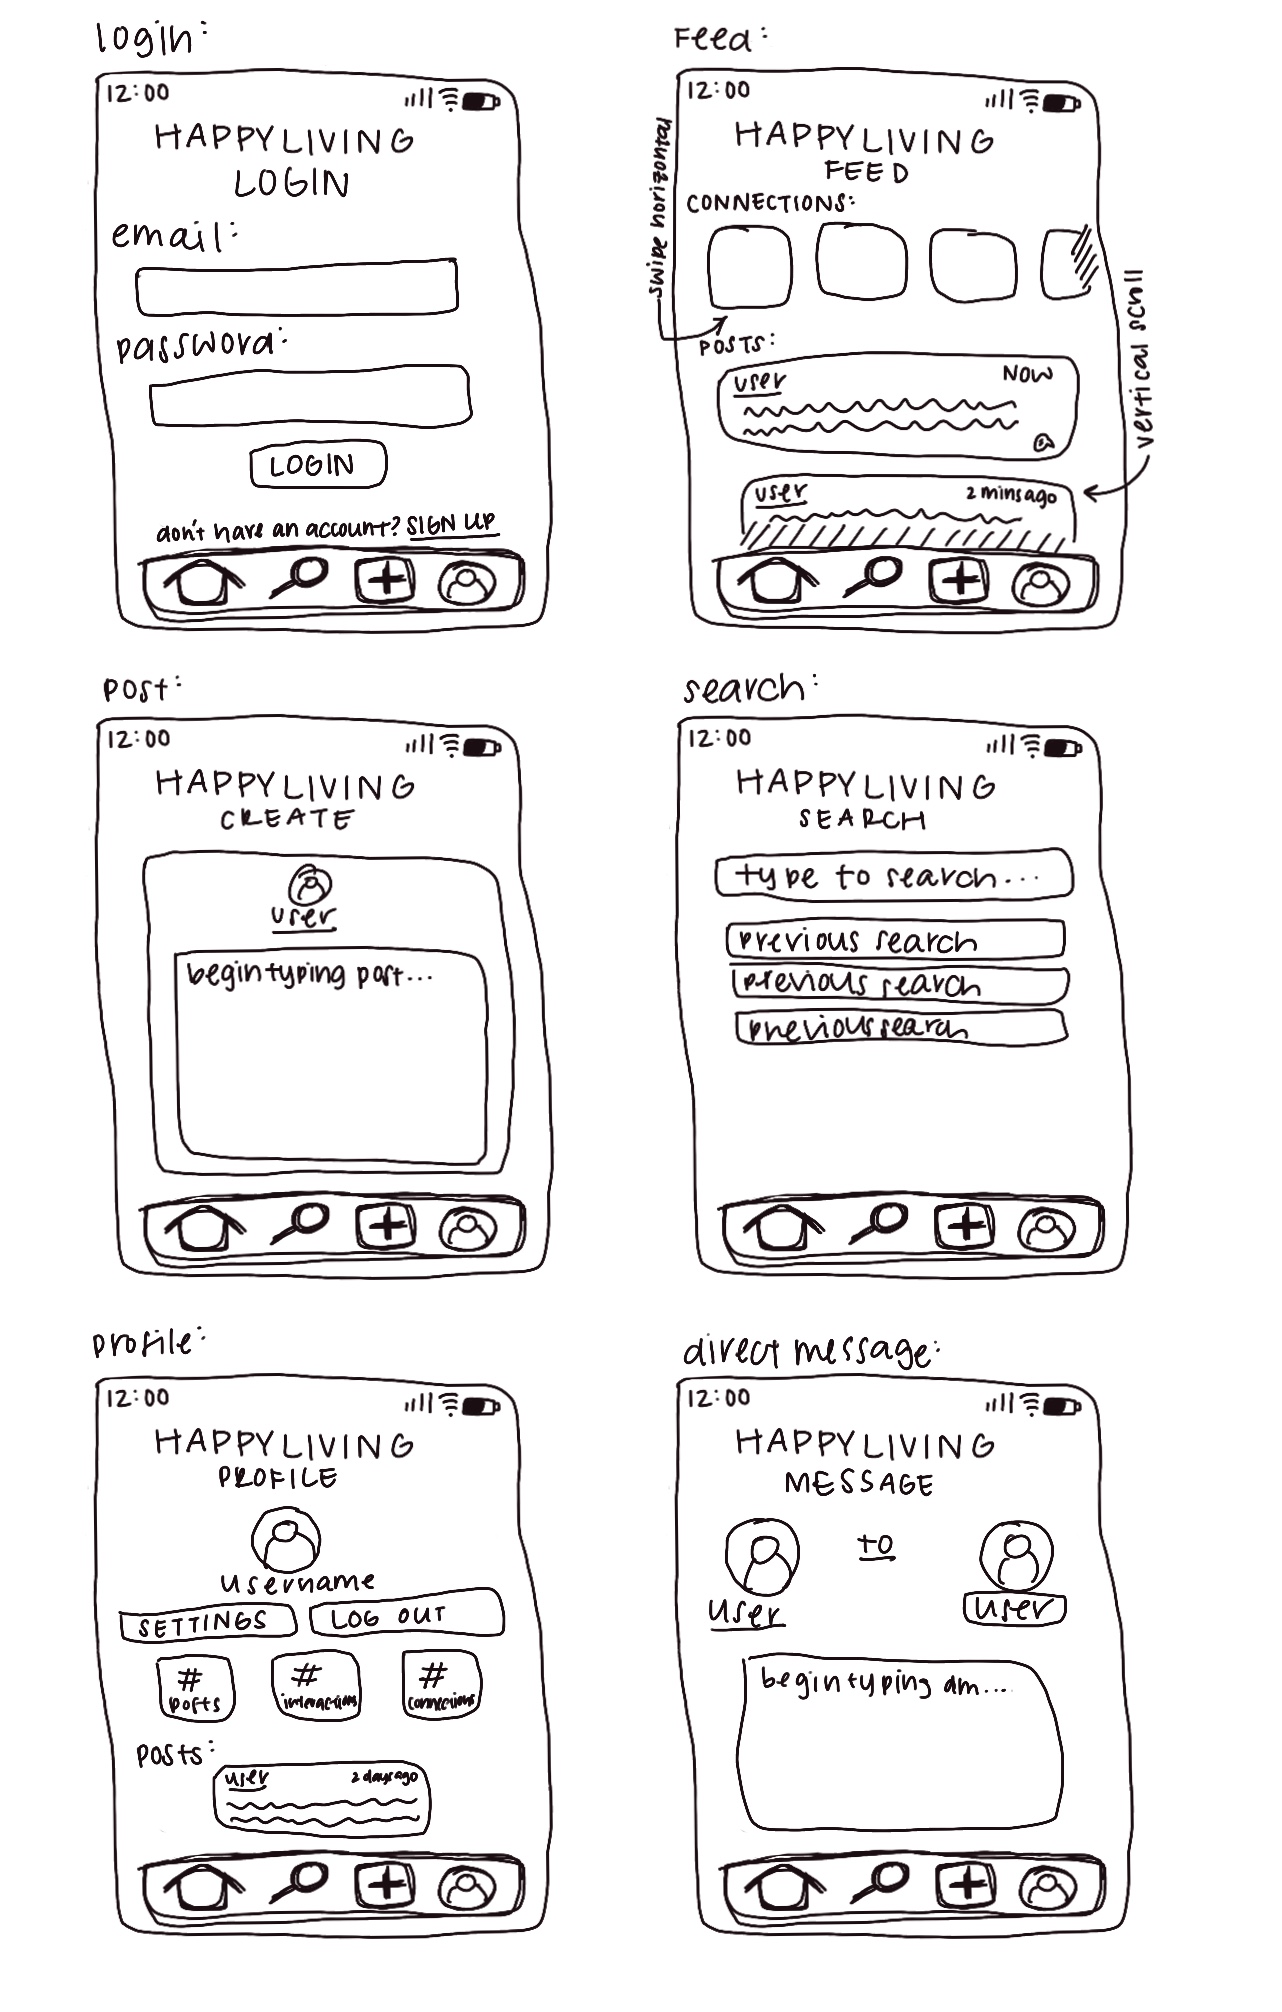 login:
12:00
HAPPY LIVING
LOGIN
email:
password:
LOGIN
don't have an account? SIGN UP
Feed:
12:00
HAPPY LIVING
FEED
CONNECTIONS:
swipe horizontal
POSTS:
user NOW
user 2 mins ago
vertical scroll
post:
12:00
HAPPY LIVING
CREATE
user
begin typing post...
search:
12:00
HAPPY LIVING
SEARCH
type to search...
previous search
previous search
previous search
profile:
12:00
HAPPY LIVING
PROFILE
username
SETTINGS LOG OUT
# # #
posts interactions connections
posts:
user 2 days ago
direct message:
12:00
HAPPY LIVING
MESSAGE
to
user user
begin typing dm...